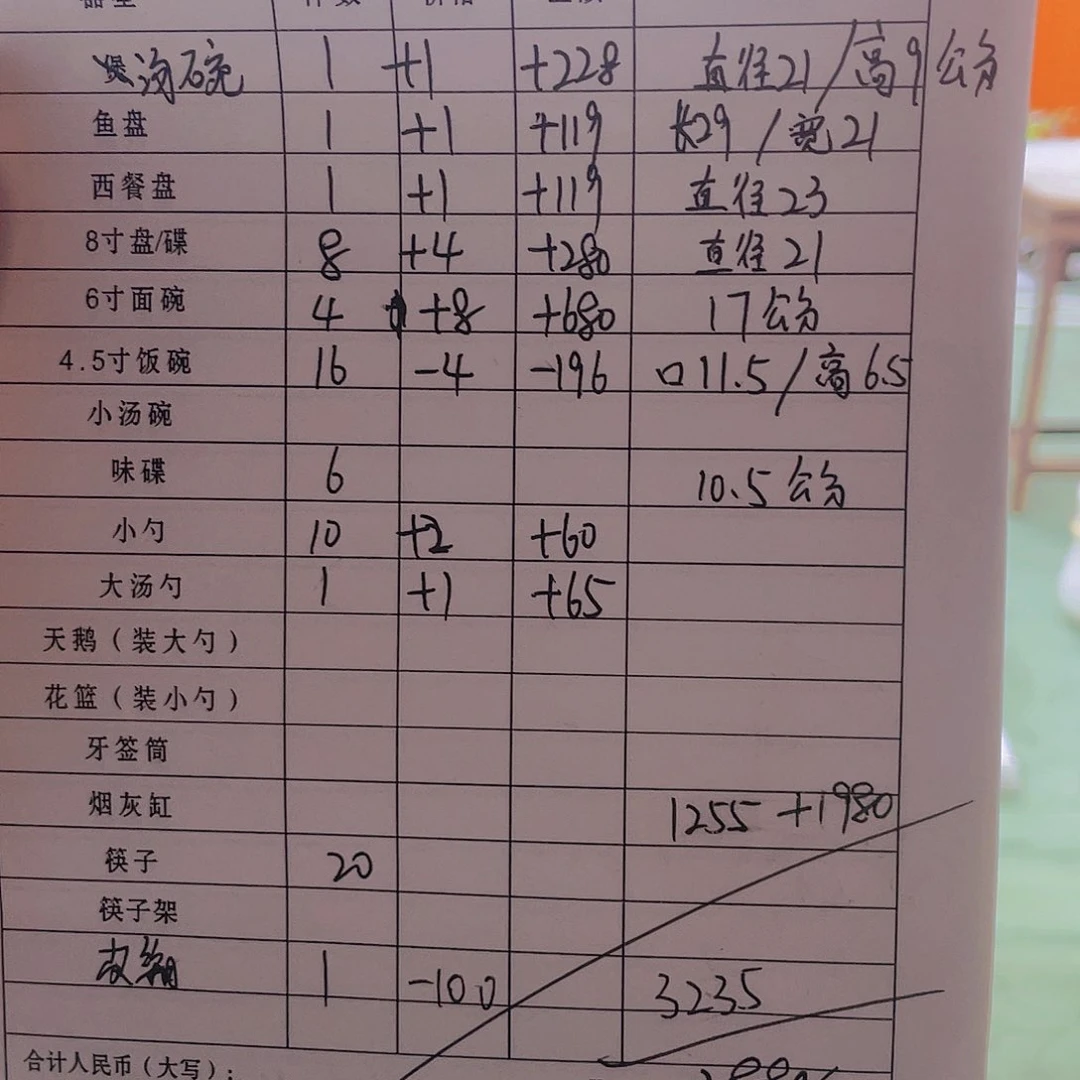 汤碗 1 +1 +228 直径21/高9公分
鱼盘 1 +1 +119 长29/宽21
西餐盘 1 +1 +119 直径23
8寸盘/碟 8 +4 +280 直径21
6寸面碗 4 +8 +680 17公分
4.5寸饭碗 16 -4 -196 口11.5/高6.5
小汤碗
味碟 6 10.5公分
小勺 10 +2 +60
大汤勺 1 +1 +65
天鹅（装大勺）
花篮（装小勺）
牙签筒
烟灰缸 1255+1980
筷子 20
筷子架
1 -100 3235
合计人民币（大写）：